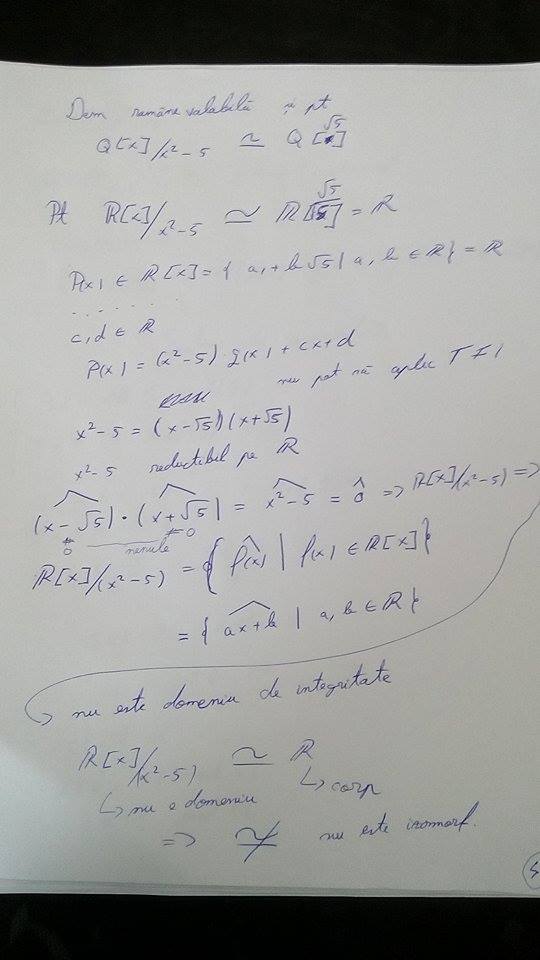 Dem rămâne valabilă și pt
Q[x]/x²-5 ≃ Q[√5]
Pt R[x]/x²-5 ≃ R[√5] = R
P(x) ∈ R[x] = { a + b√5 | a, b ∈ R } = R
. . . . . . .
c, d ∈ R
P(x) = (x²-5) · q(x) + cx + d
nu pot să aplic T F I
x²-5 = (x-√5)(x+√5)
x²-5 reductibil pe R
(x-√5)^ · (x+√5)^ = (x²-5)^ = 0^ => R[x]/(x²-5) =>
≠0 nenule ≠0
R[x]/(x²-5) = { f(x)^ | f(x) ∈ R[x] }
= { (ax+b)^ | a, b ∈ R }
↳ nu este domeniu de integritate
R[x]/(x²-5) ≃ R
↳ nu e domeniu ↳ corp
=> ≄ nu este izomorf.